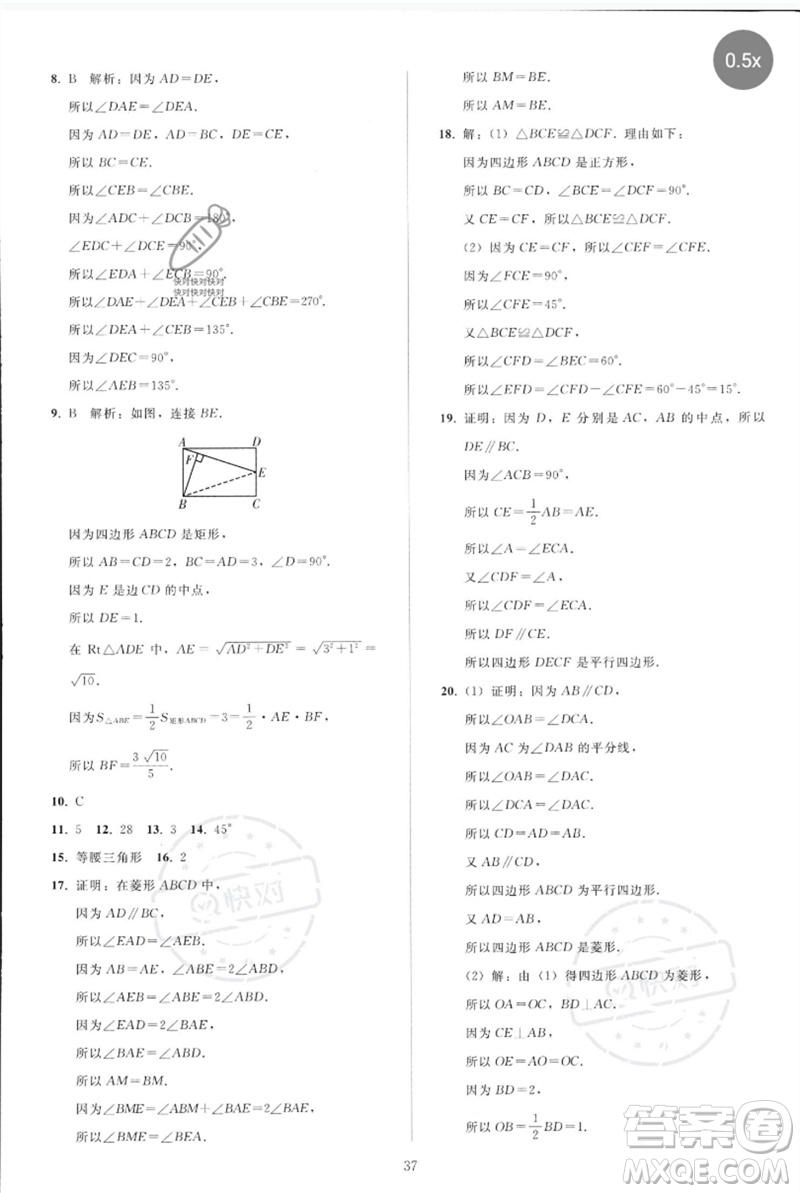 0.5x
8. B 解析：因为 AD=DE，
所以∠DAE=∠DEA.
因为 AD=DE，AD=BC，DE=CE，
所以 BC=CE.
所以∠CEB=∠CBE.
因为∠ADC+∠DCB=180°，
∠EDC+∠DCE=90°，
所以∠EDA+∠ECB=90°.
快对快对快对
快对快对快对
所以∠DAE+∠DEA+∠CEB+∠CBE=270°.
所以∠DEA+∠CEB=135°.
因为∠DEC=90°，
所以∠AEB=135°.
9. B 解析：如图，连接 BE.
A D
F
E
B C
因为四边形 ABCD 是矩形，
所以 AB=CD=2，BC=AD=3，∠D=90°.
因为 E 是边 CD 的中点，
所以 DE=1.
在 Rt△ADE 中，AE=√(AD²+DE²)=√(3²+1²)=
√10.
因为S△ABE=1/2 S矩形ABCD=3=1/2·AE·BF，
所以 BF=3√10/5.
10. C
11. 5 12. 28 13. 3 14. 45°
15. 等腰三角形 16. 2
17. 证明：在菱形 ABCD 中，
因为 AD∥BC，
所以∠EAD=∠AEB.
因为 AB=AE，∠ABE=2∠ABD，
所以∠AEB=∠ABE=2∠ABD.
因为∠EAD=2∠BAE，
所以∠ABD=∠BAE.
所以 AM=BM.
因为∠BME=∠ABD+∠BAE=2∠ABD，
所以∠BME=∠BEA.
所以 BM=BE.
所以 AM=BE.
18. 解：(1) △BCE≌△DCF. 理由如下：
因为四边形 ABCD 是正方形，
所以 BC=CD，∠BCE=∠DCF=90°.
又 CE=CF，所以△BCE≌△DCF.
(2) 因为 CE=CF，所以∠CEF=∠CFE.
因为∠FCE=90°，
所以∠CFE=45°.
又△BCE≌△DCF，
所以∠CFD=∠BEC=60°.
所以∠EFD=∠CFD-∠CFE=60°-45°=15°.
19. 证明：因为 D，E 分别是 AC，AB 的中点，所以
DE∥BC.
因为∠ACB=90°，
所以 CE=1/2 AB=AE.
所以∠A=∠ECA.
又∠CDF=∠A，
所以∠CDF=∠ECA.
所以 DF∥CE.
所以四边形 DECF 是平行四边形.
20. (1) 证明：因为 AB∥CD，
所以∠OAB=∠DCA.
因为 AC 为∠DAB 的平分线，
所以∠OAB=∠DAC.
所以∠DCA=∠DAC.
所以 CD=AD=AB.
所以四边形 ABCD 为平行四边形.
又 AD=AB，
所以四边形 ABCD 是菱形.
(2) 解：由 (1) 得四边形 ABCD 为菱形，
所以 OA=OC，BD⊥AC.
因为 CE⊥AB，
所以 OE=AO=OC.
因为 BD=2，
所以 OB=1/2 BD=1.
快对
快对
37
答案圈
MXQE.COM